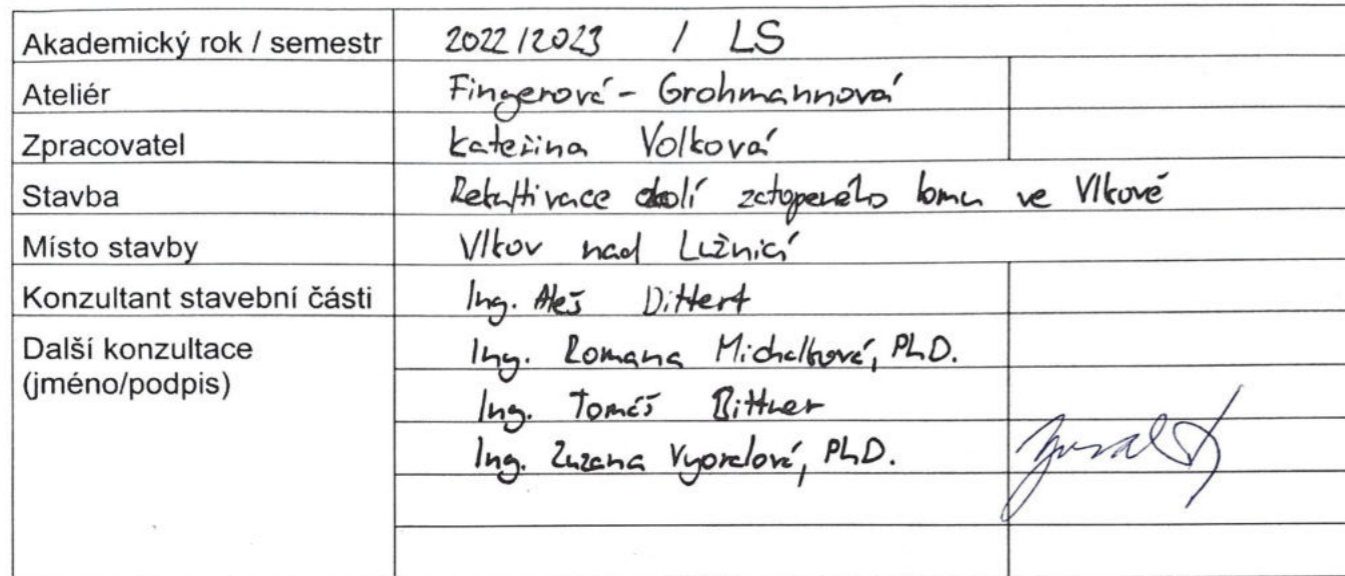 Akademický rok / semestr 2022/2023 / LS
Ateliér Fingerová - Grohmannová
Zpracovatel Kateřina Volková
Stavba Rekultivace okolí zatopeného lomu ve Vlkově
Místo stavby Vlkov nad Lužnicí
Konzultant stavební části Ing. Aleš Dittert
Další konzultace Ing. Romana Michalková, PhD.
(jméno/podpis)
Ing. Tomáš Bittner
Ing. Zuzana Vyoralová, PhD.